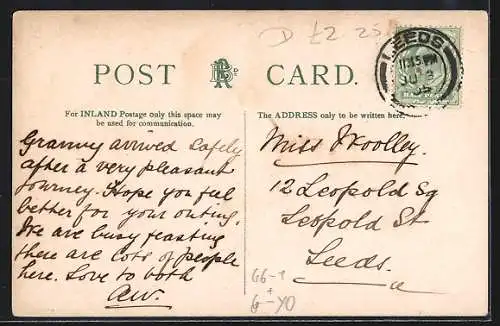 D £2 25
LEEDS
11.15 PM
POST CARD.
For INLAND Postage only this space may
be used for communication.
The ADDRESS only to be written here.
Granny arrived safely
after a very pleasant
journey. Hope you feel
better for your outing.
We are busy feasting
there are lots of people
here. Love to both
AW.
Miss Woolley.
12 Leopold Sq
Leopold St
Leeds.